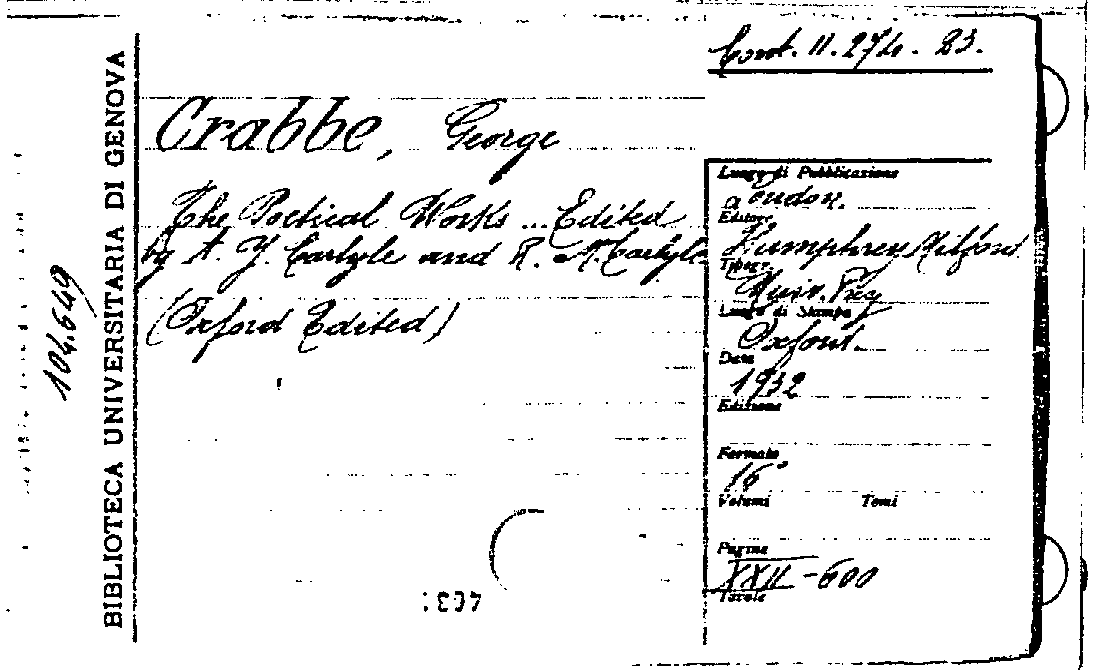 Cont. II. 274. 23.
BIBLIOTECA UNIVERSITARIA DI GENOVA
104.649
Crabbe, George
The Poetical Works ... Edited
by A. J. Carlyle and R. M. Carlyle
(Oxford Edited)
Luogo di Pubblicazione
London.
Editore
Humphrey Milford
Tipogr.
Univ. Press
Luogo di Stampa
Oxford.
Data
1932
Edizione
Formato
16°
Volumi Tomi
Pagine
XXII-600
Tavole